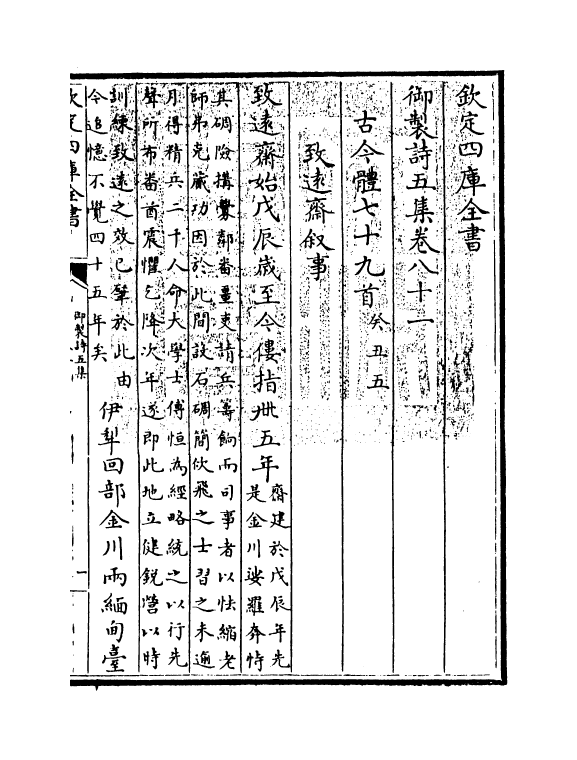 欽定四庫全書
御製詩五集卷八十一
古今體七十九首癸丑五
致遠齋叙事
致遠齋始戊辰歲至今僂指卌五年
齋建於戊辰年先
是金川娑羅奔恃
其碉險搆釁鄰番疆吏請兵籌餉而司事者以怯縮老
師弗克蕆功因於此間設石碉簡佽飛之士習之未逾
月得精兵二千人命大學士傅恒為經略統之以行先
聲所布番酋震懼乞降次年遂即此地立健銳營以時
訓練致遠之效已肇於此由
今追憶不覺四十五年矣
伊犁回部金川兩緬甸臺
欽定四庫全書
御製詩五集
一